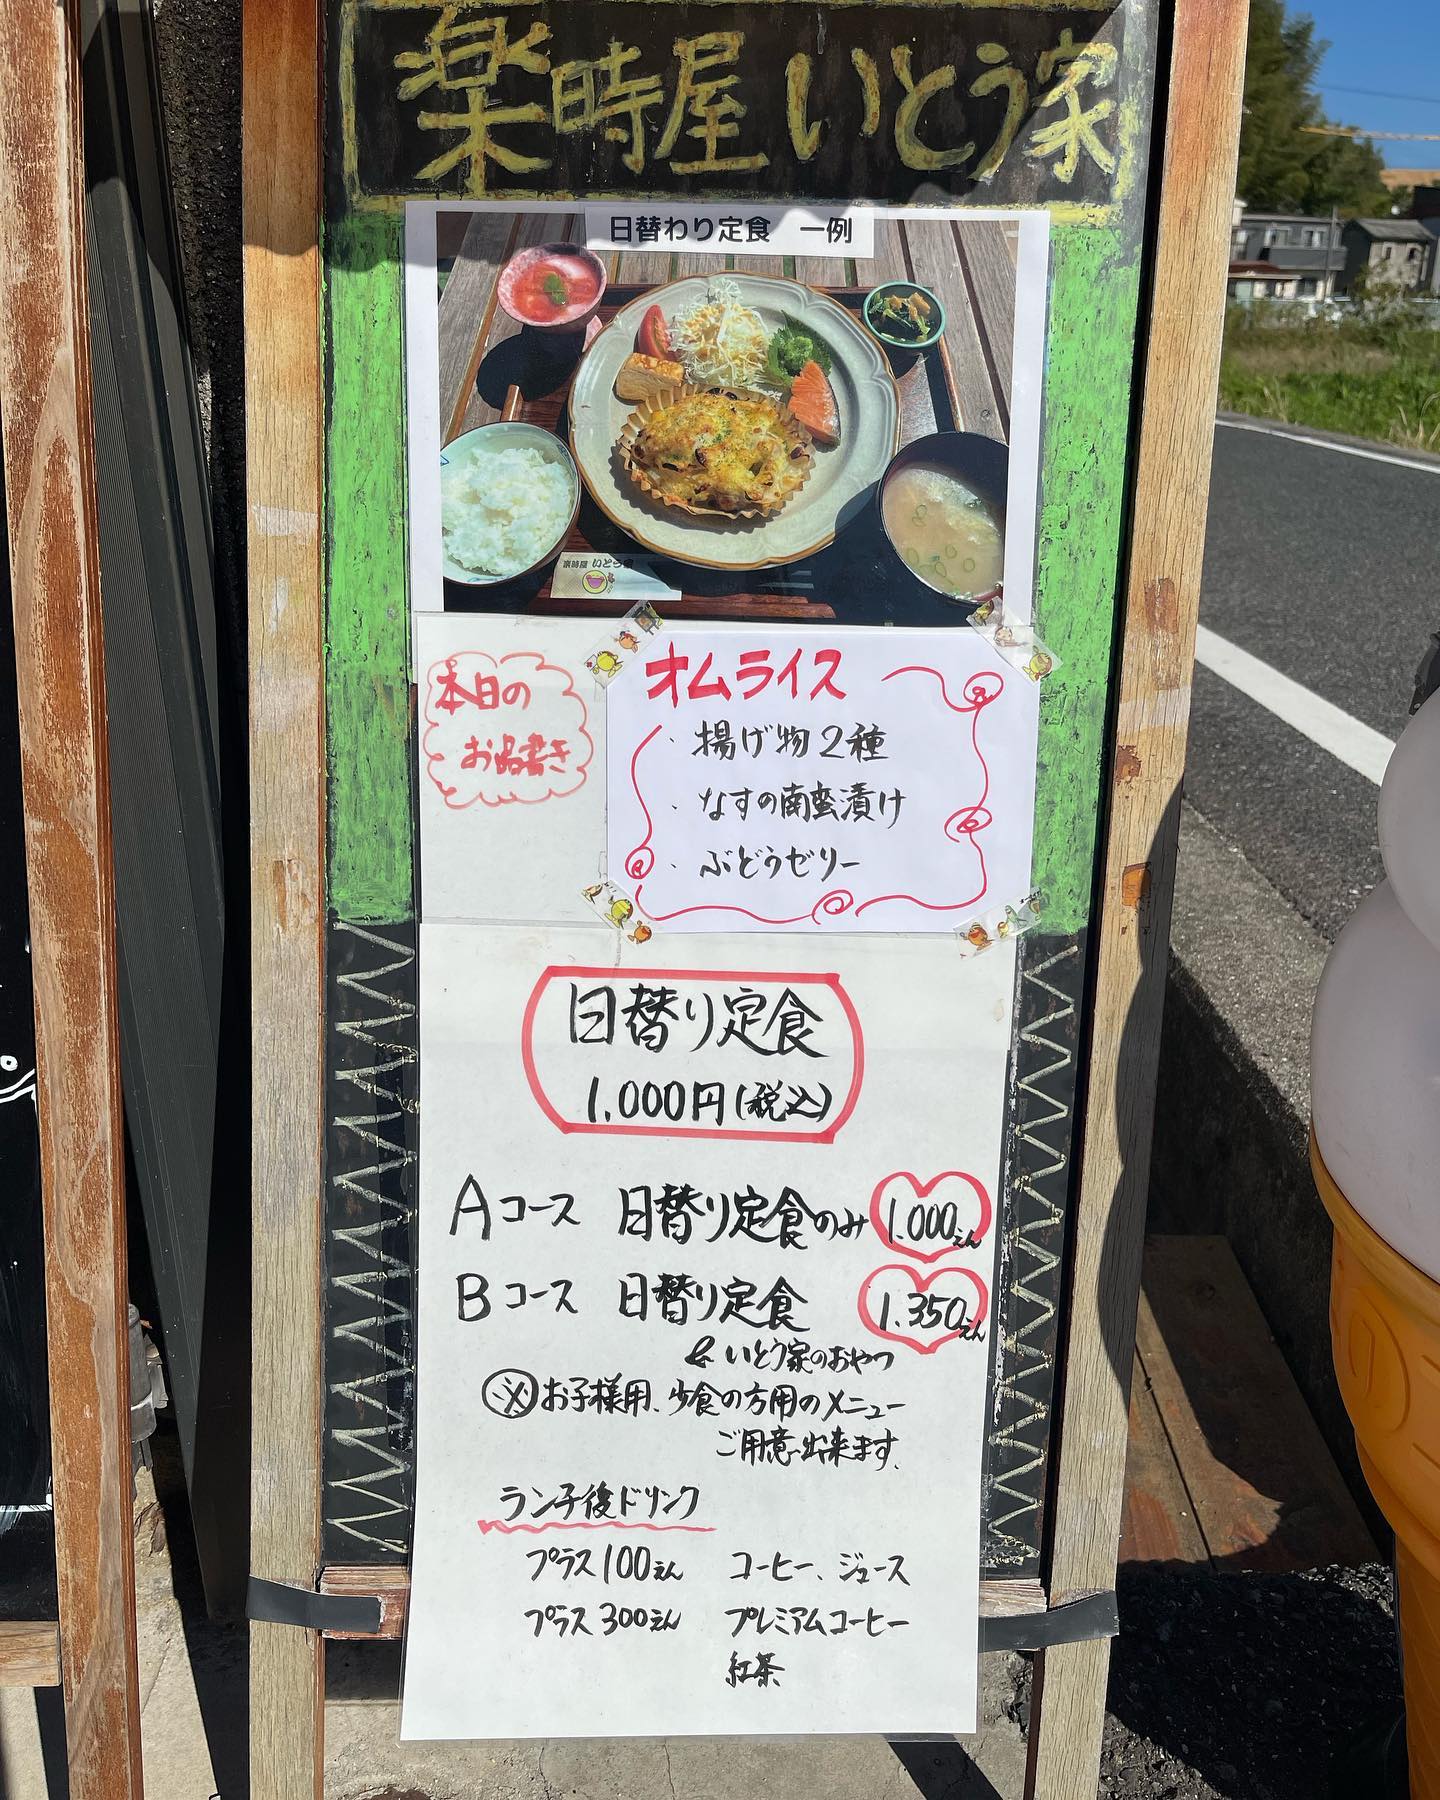 楽時屋 いとう家
日替わり定食 一例
楽時屋 いとう家
本日の
お品書き
オムライス
・揚げ物2種
・なすの南蛮漬け
・ぶどうゼリー
日替り定食
1,000円(税込)
Aコース 日替り定食のみ 1.000えん
Bコース 日替り定食 1.350えん
& いとう家のおやつ
※お子様用、少食の方用のメニュー
ご用意出来ます。
ランチ後ドリンク
プラス100えん コーヒー、ジュース
プラス300えん プレミアムコーヒー
紅茶